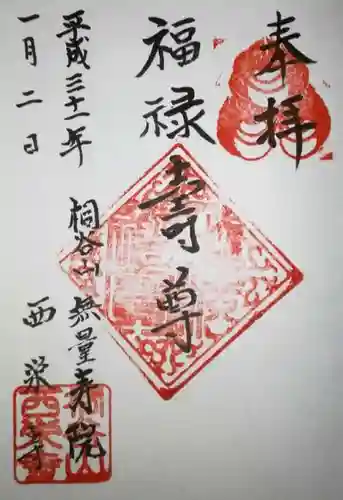 奉拝
福禄
壽尊
平成三十一年
一月二日
桐谷山 無量寿院
西栄寺